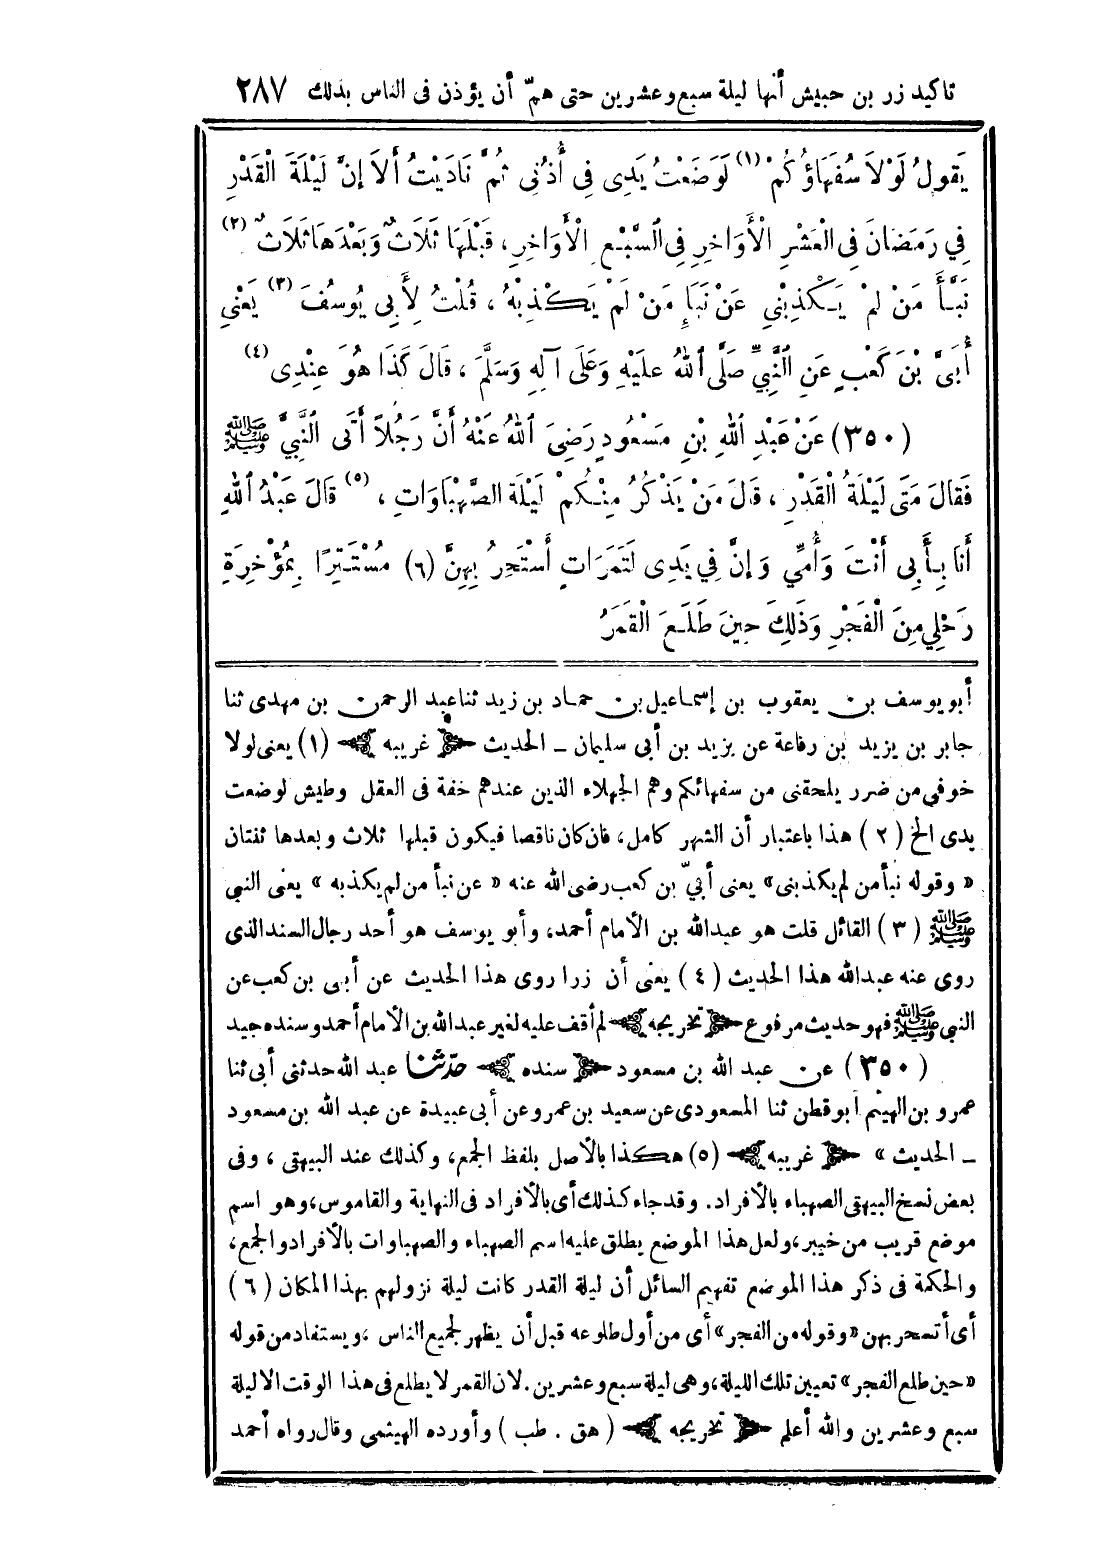 تاكيد زر بن حبيش أنها ليلة سبع وعشرين حتى همّ أن يؤذن فى الناس بذلك ٢٨٧
يَقُولُ لَوْلاَ سُفَهَاؤُكُمْ (١) لَوَضَعْتُ يَدِى فِى أُذُنِى ثُمَّ نَادَيْتُ أَلاَ إِنَّ لَيْلَةَ الْقَدْرِ
فِي رَمَضَانَ فِى الْعَشْرِ الْأَوَاخِرِ فِى السَّبْعِ الْأَوَاخِرِ، قَبْلَهَا ثَلَاثٌ وَبَعْدَهَا ثَلَاثٌ (٢)
نَبَّأَ مَنْ لَمْ يَكْذِبْنِي عَنْ نَبَإِ مَنْ لَمْ يَكْذِبْهُ، قُلْتُ لِأَبِي يُوسُفَ (٣) يَعْنِي
أُبَىَّ بْنَ كَعْبٍ عَنِ النَّبِيِّ صَلَّى اللهُ عَلَيْهِ وَعَلَى آلِهِ وَسَلَّمَ، قَالَ كَذَا هُوَ عِنْدِى (٤)
(٣٥٠) عَنْ عَبْدِ اللهِ بْنِ مَسْعُودٍ رَضِىَ اللهُ عَنْهُ أَنَّ رَجُلاً أَتَى النَّبِيَّ ﷺ
فَقَالَ مَتَى لَيْلَةُ الْقَدْرِ، قَالَ مَنْ يَذْكُرُ مِنْكُمْ لَيْلَةَ الصَّهْبَاوَاتِ، (٥) قَالَ عَبْدُ اللهِ
أَنَا بِأَبِى أَنْتَ وَأُمِّي وَإِنَّ فِي يَدِى لَتَمَرَاتٍ أَسْتَحِرُ بِهِنَّ (٦) مُسْتَتِرًا بِمُؤْخِرَةِ
رَحْلِي مِنَ الْفَجْرِ وَذَلِكَ حِينَ طَلَعَ الْقَمَرُ
أبو يوسف بن يعقوب بن إسماعيل بن حماد بن زيد ثنا عبد الرحمن بن مهدى ثنا
جابر بن يزيد بن رفاعة عن يزيد بن أبى سليمان ـ الحديث ﴿ غريبه ﴾ (١) يعنى لولا
خوفي من ضرر يلحقنى من سفهائكم وهم الجهلاء الذين عندهم خفة فى العقل وطيش لوضعت
يدى الخ (٢) هذا باعتبار أن الشهر كامل، فان كان ناقصا فيكون قبلها ثلاث وبعدها ثنتان
« وقوله نبأ من لم يكذبنى » يعنى أبيّ بن كعب رضى الله عنه « عن نبأ من لم يكذبه » يعنى النبي
ﷺ (٣) القائل قلت هو عبدالله بن الأمام أحمد، وأبو يوسف هو أحد رجال السند الذى
روى عنه عبدالله هذا الحديث (٤) يعنى أن زرا روى هذا الحديث عن أبى بن كعب عن
النبي ﷺ فهو حديث مرفوع ﴿ تخريجه ﴾ لم أقف عليه لغير عبدالله بن الأمام أحمد وسنده جيد
(٣٥٠) عن عبد الله بن مسعود ﴿ سنده ﴾ حدّثنا عبد الله حدثنى أبى ثنا
عمرو بن الهيثم أبو قطن ثنا المسعودى عن سعيد بن عمرو عن أبى عبيدة عن عبد الله بن مسعود
ـ الحديث » ﴿ غريبه ﴾ (٥) هكذا بالأصل بلفظ الجمع، وكذلك عند البيهقى، وفى
بعض نسخ البيهقى الصهباء بالأفراد. وقد جاء كذلك أى بالأفراد فى النهاية والقاموس، وهو اسم
موضع قريب من خيبر، ولعل هذا الموضع يطلق عليه اسم الصهباء والصهباوات بالأفراد والجمع،
والحكمة فى ذكر هذا الموضع تفهيم السائل أن ليلة القدر كانت ليلة نزولهم بهذا المكان (٦)
أى أتسحر بهن « وقوله من الفجر » أى من أول طلوعه قبل أن يظهر لجميع الناس، ويستفاد من قوله
« حين طلع الفجر » تعيين تلك الليلة، وهى ليلة سبع وعشرين. لان القمر لا يطلع فى هذا الوقت الا ليلة
سبع وعشرين والله أعلم ﴿ تخريجه ﴾ (هق . طب) وأورده الهيثمى وقال رواه أحمد